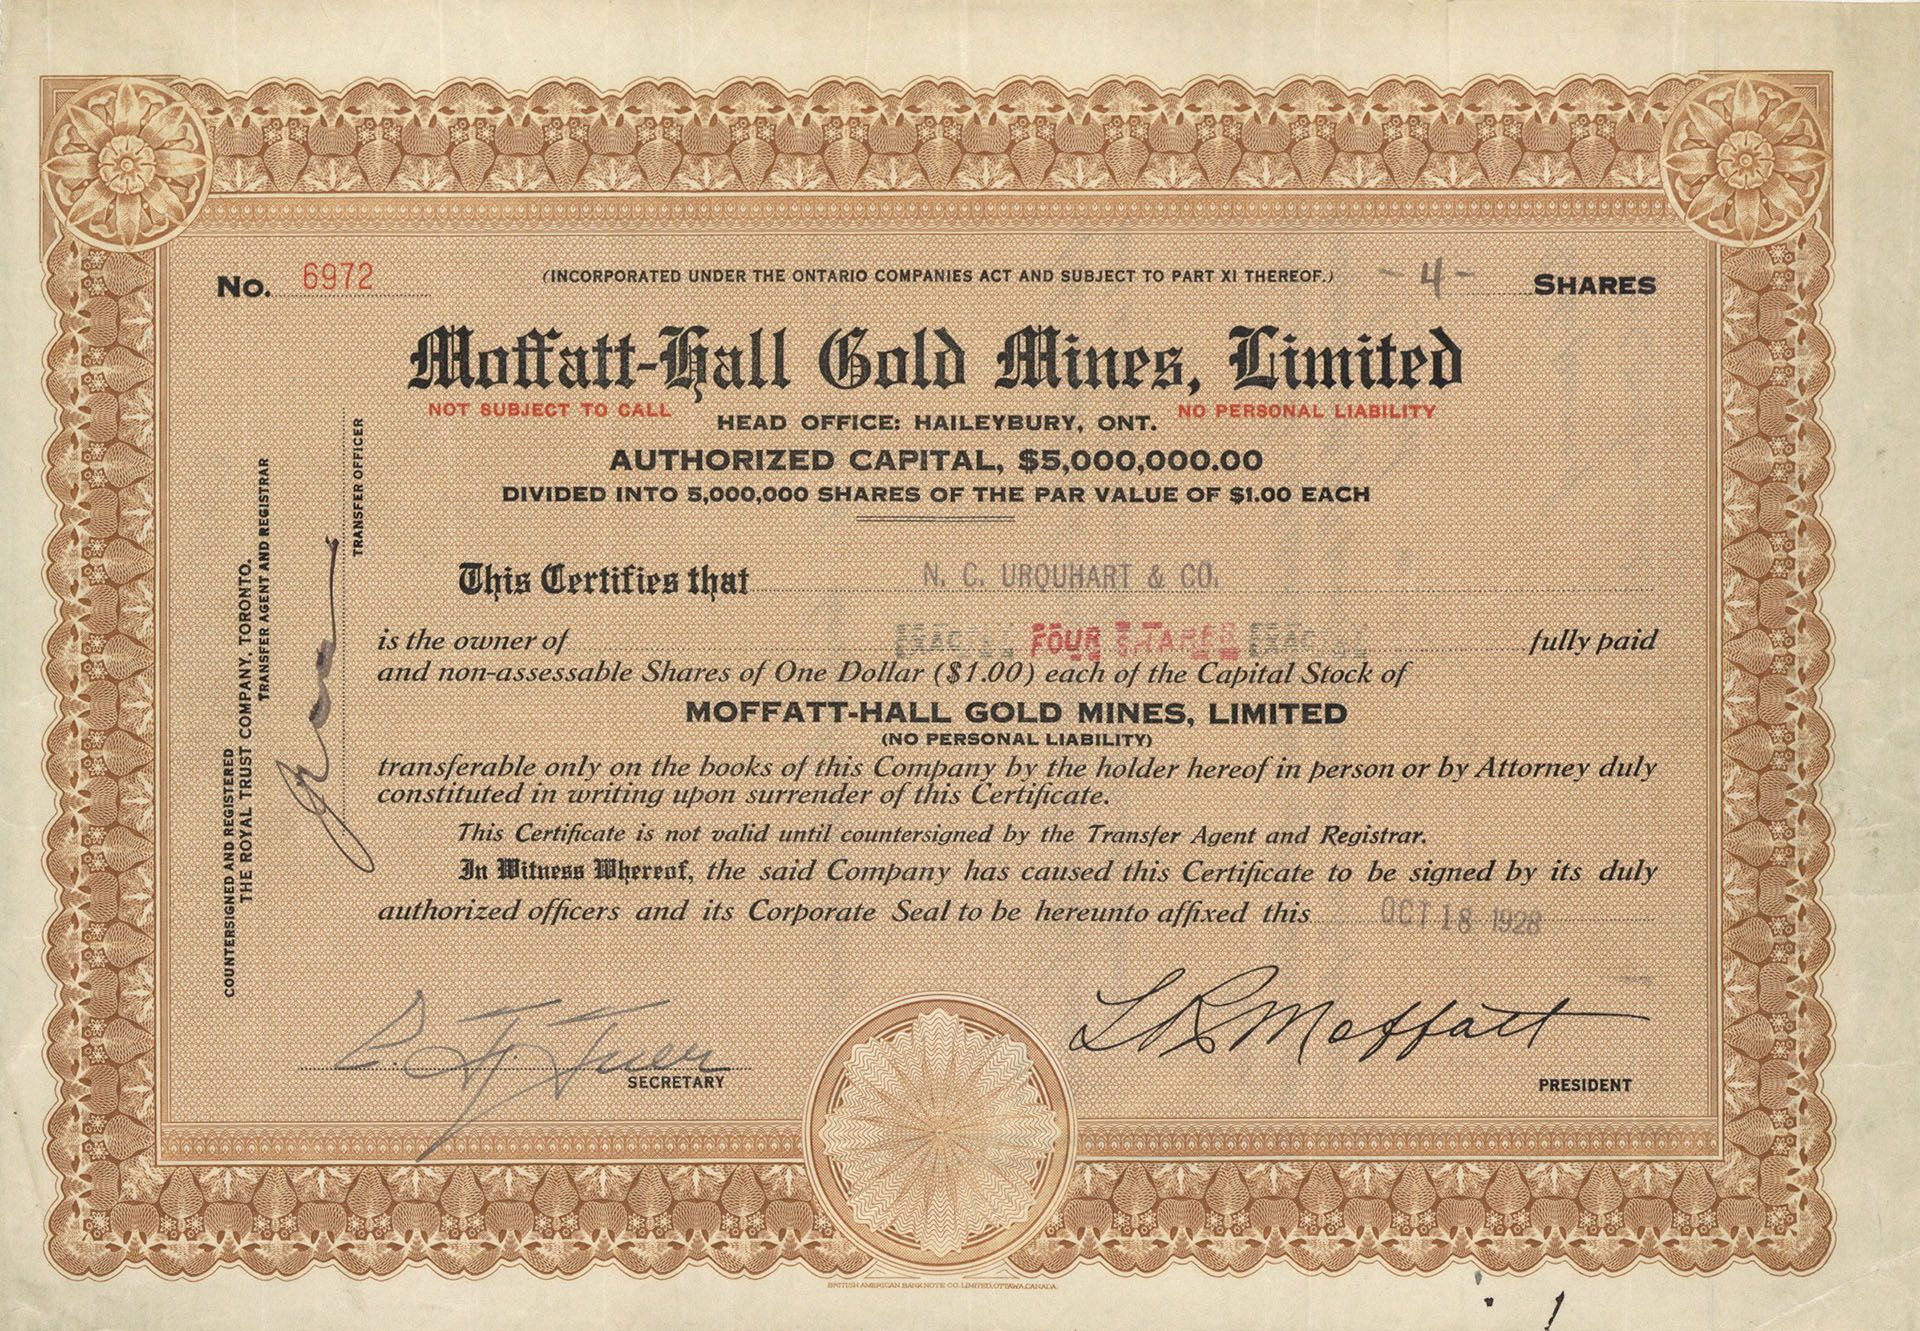 No. 6972
(INCORPORATED UNDER THE ONTARIO COMPANIES ACT AND SUBJECT TO PART XI THEREOF.)
- 4 - SHARES
Moffatt-Hall Gold Mines, Limited
NOT SUBJECT TO CALL
NO PERSONAL LIABILITY
HEAD OFFICE: HAILEYBURY, ONT.
AUTHORIZED CAPITAL, $5,000,000.00
DIVIDED INTO 5,000,000 SHARES OF THE PAR VALUE OF $1.00 EACH
COUNTERSIGNED AND REGISTERED
THE ROYAL TRUST COMPANY, TORONTO.
TRANSFER AGENT AND REGISTRAR
TRANSFER OFFICER
This Certifies that N. C. URQUHART & CO.
is the owner of FOUR SHARES fully paid
and non-assessable Shares of One Dollar ($1.00) each of the Capital Stock of
MOFFATT-HALL GOLD MINES, LIMITED
(NO PERSONAL LIABILITY)
transferable only on the books of this Company by the holder hereof in person or by Attorney duly
constituted in writing upon surrender of this Certificate.
This Certificate is not valid until countersigned by the Transfer Agent and Registrar.
In Witness Whereof, the said Company has caused this Certificate to be signed by its duly
authorized officers and its Corporate Seal to be hereunto affixed this OCT 18 1928
L R Moffatt
SECRETARY
PRESIDENT
BRITISH AMERICAN BANK NOTE CO. LIMITED, OTTAWA, CANADA.